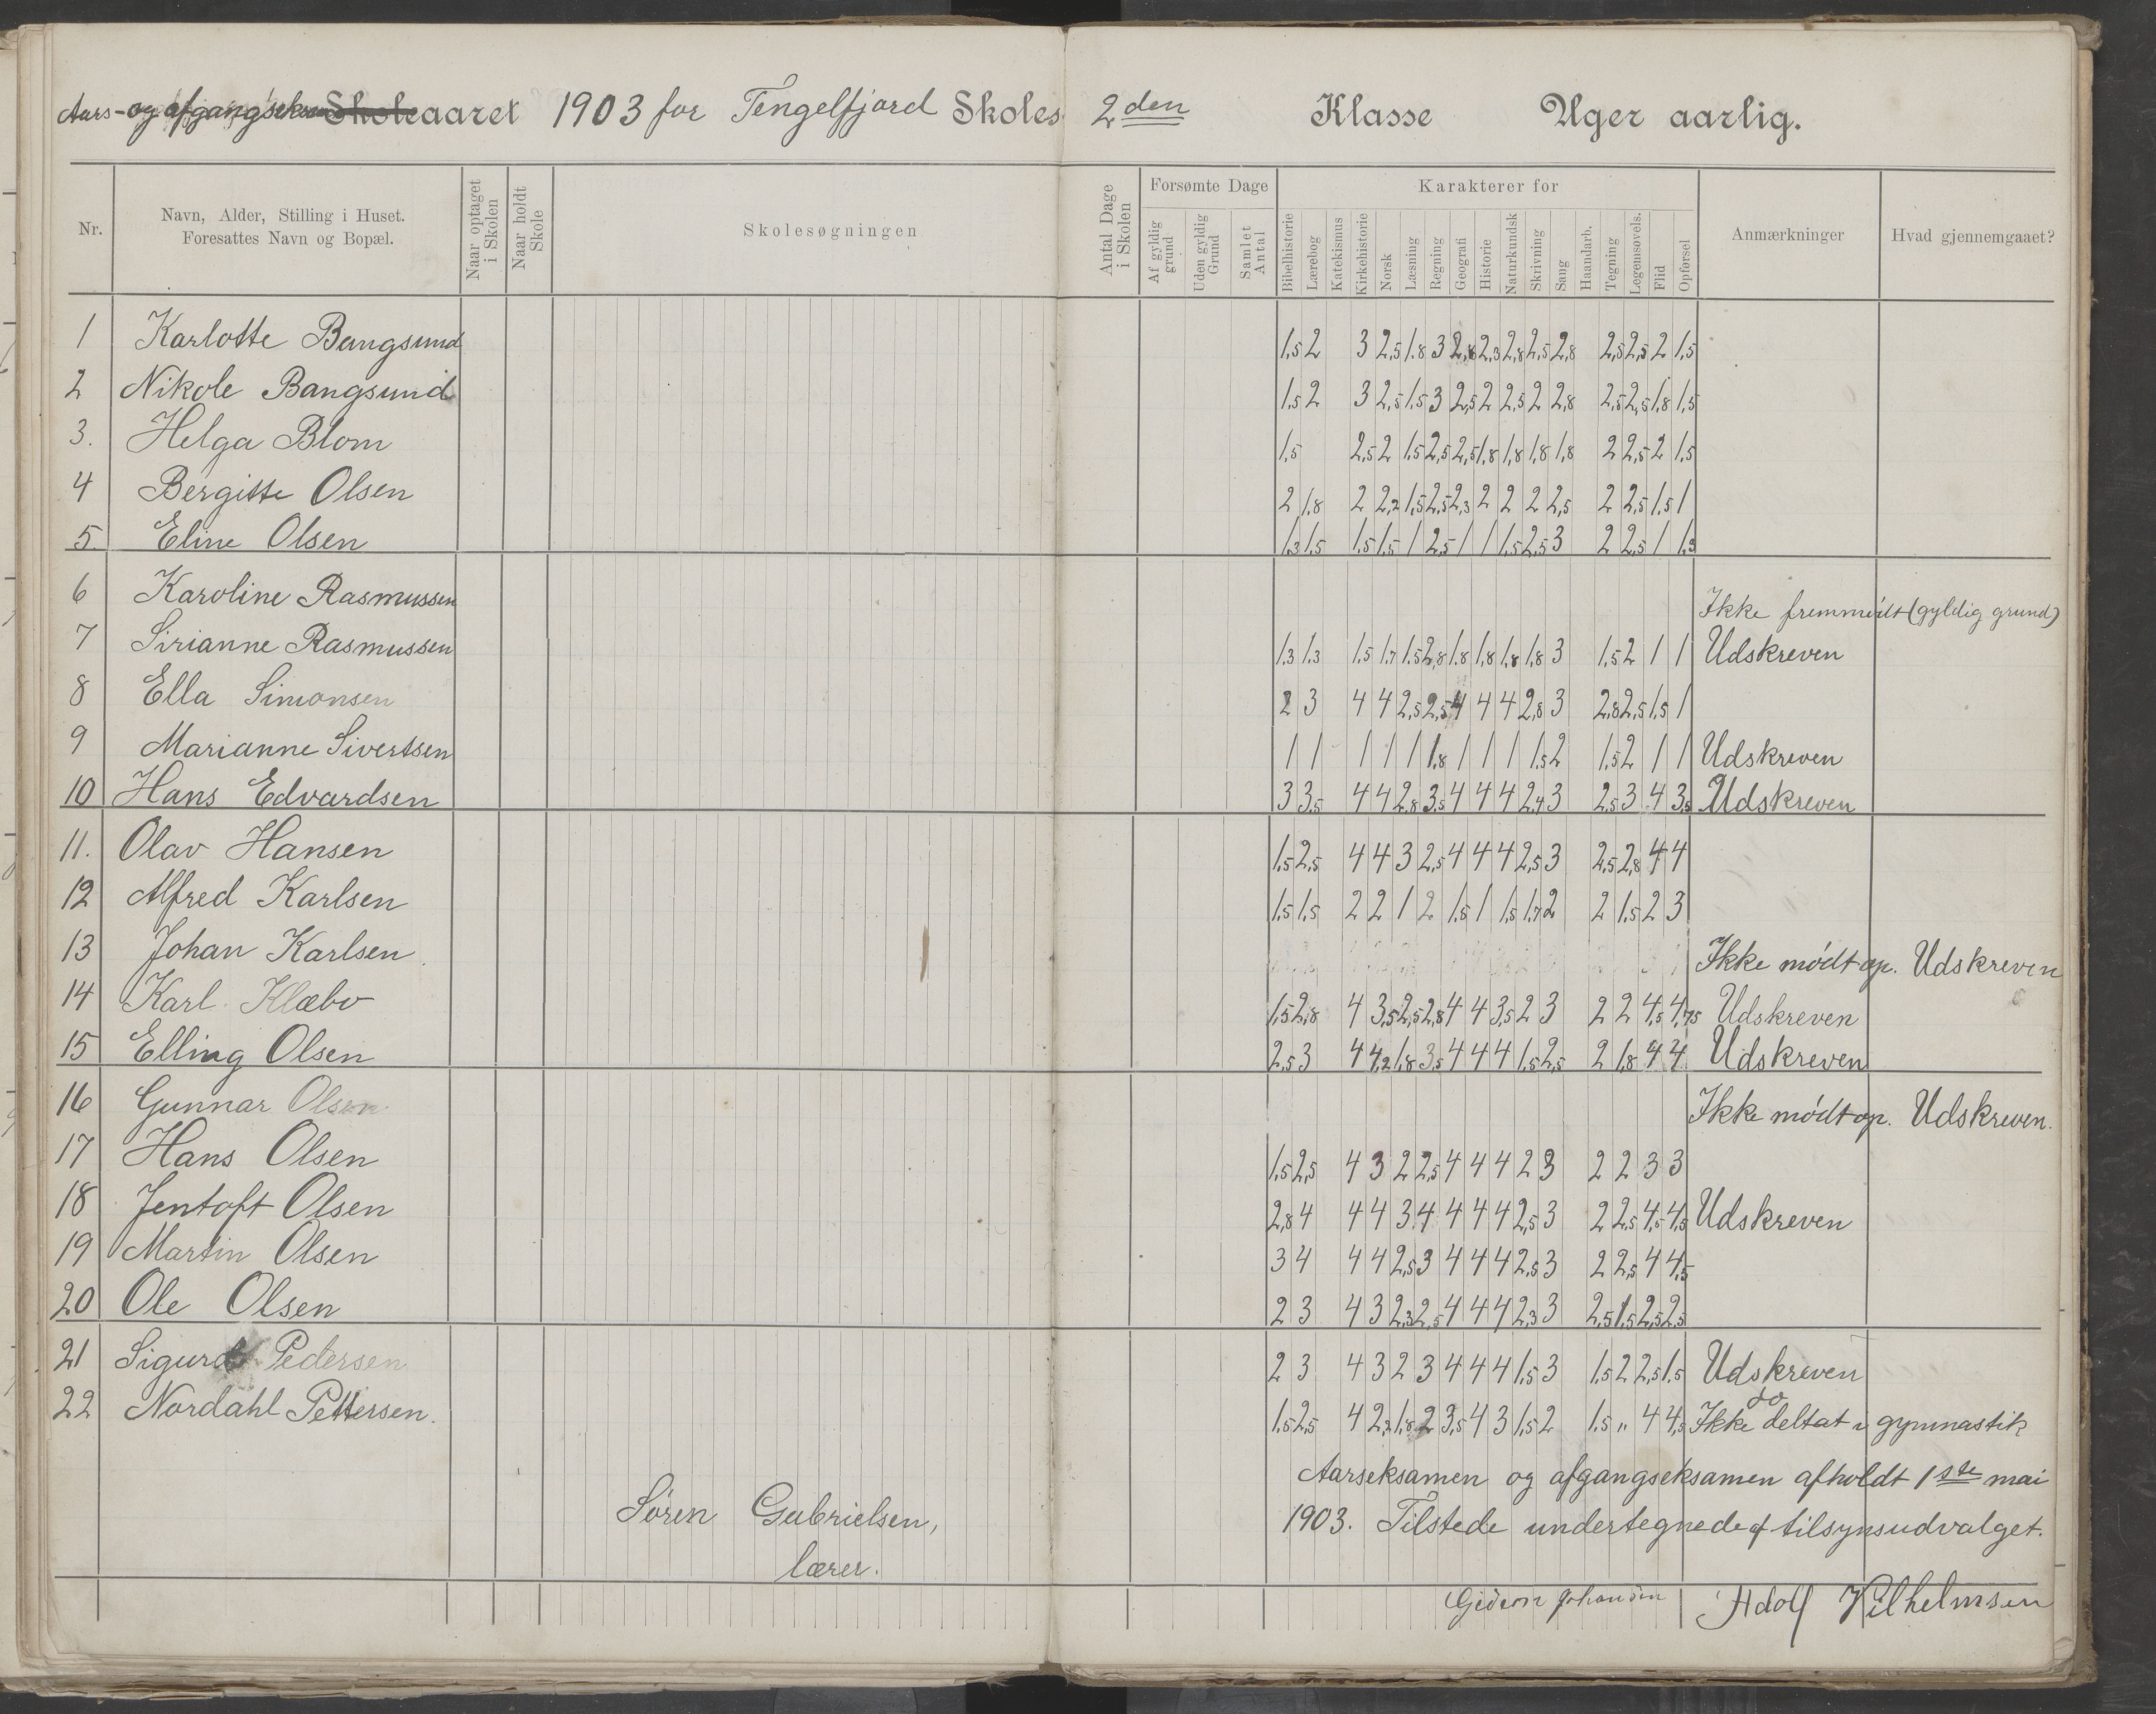 Aars- og afgangseksam Skoleaaret 1903 for Tengelfjord Skoles 2den Klasse Uger aarlig.
Nr. Navn, Alder, Stilling i Huset. Foresattes Navn og Bopæl. Naar optaget i Skolen Naar holdt Skole Skolesøgningen Antal Dage i Skolen Forsømte Dage Af gyldig grund Uden gyldig Grund Samlet Antal Karakterer for Bibelhistorie Lærebog Katekismus Kirkehistorie Norsk Læsning Regning Geografi Historie Naturkundsk Skrivning Sang Haandarb. Tegning Legemsøvels. Flid Opførsel Anmærkninger Hvad gjennemgaaet?
1 Karlotte Bangsund 1,5 2 3 2,5 1,8 3 2,8 2,3 2,8 2,5 2,8 2,5 2,5 2 1,5
2 Nikole Bangsund 1,5 2 3 2,5 1,5 3 2,5 2 2,5 2 2,8 2,5 2,5 1,8 1,5
3. Helga Blom 1,5 2,5 2 1,5 2,5 2,5 1,8 1,8 1,8 1,8 2 2,5 2 1,5
4 Bergitte Olsen 2 1,8 2 2,2 1,5 2,5 2,3 2 2 2 2,5 2 2,5 1,5 1
5. Eline Olsen 1,3 1,5 1,5 1,5 1 2,5 1 1 1,5 2,5 3 2 2,5 1 1,3
6 Karoline Rasmussen Ikke fremmödt (gyldig grund)
7 Sirianne Rasmussen 1,3 1,3 1,5 1,7 1,5 2,8 1,8 1,8 1,8 1,8 3 1,5 2 1 1 Udskreven
8 Ella Simonsen 2 3 4 4 2,5 2,5 4 4 4 2,8 3 2,8 2,5 1,5 1
9 Marianne Sivertsen 1 1 1 1 1 1,8 1 1 1 1,5 2 1,5 2 1 1 Udskreven
10 Hans Edvardsen 3 3,5 4 4 2,8 3,5 4 4 4 2,4 3 2,5 3 4 3,5 Udskreven
11. Olav Hansen 1,5 2,5 4 4 3 2,5 4 4 4 2,5 3 2,5 2,8 4 4
12 Alfred Karlsen 1,5 1,5 2 2 1 2 1,5 1 1,5 1,7 2 2 1,5 2 3
13 Johan Karlsen Ikke mödt op. Udskreven
14 Karl Klæbo 1,5 2,8 4 3,5 2,5 2,8 4 4 3,5 2 3 2 2 4,5 4,75 Udskreven
15 Elling Olsen 2,5 3 4 4,2 1,8 3,5 4 4 4 1,5 2,5 2 1,8 4 4 Udskreven
16 Gunnar Olsen Ikke mödt op. Udskreven.
17 Hans Olsen 1,5 2,5 4 3 2 2,5 4 4 4 2 3 2 2 3 3
18 Jentoft Olsen 2,8 4 4 4 3 4 4 4 4 2,5 3 2 2,5 4,5 4,5 Udskreven
19 Martin Olsen 3 4 4 4 2,5 3 4 4 4 2,5 3 2 2,5 4 4,5
20 Ole Olsen 2 3 4 3 2,3 2,5 4 4 4 2,3 3 2,5 1,5 2,5 2,5
21 Sigurd Pedersen 2 3 4 3 2 3 4 4 4 1,5 3 1,5 2 2,5 1,5 Udskreven
do
22 Nordahl Pettersen. 1,5 2,5 4 2,2 1,8 2 3,5 4 3 1,5 2 1,5 „ 4 4,5 Ikke deltat i gymnastik
Aarseksamen og afgangseksamen afholdt 1ste mai
1903. Tilstede undertegnede af tilsynsudvalget.
Sören Gabrielsen,
lærer.
Gideon Johansen Adolf Vilhelmsen